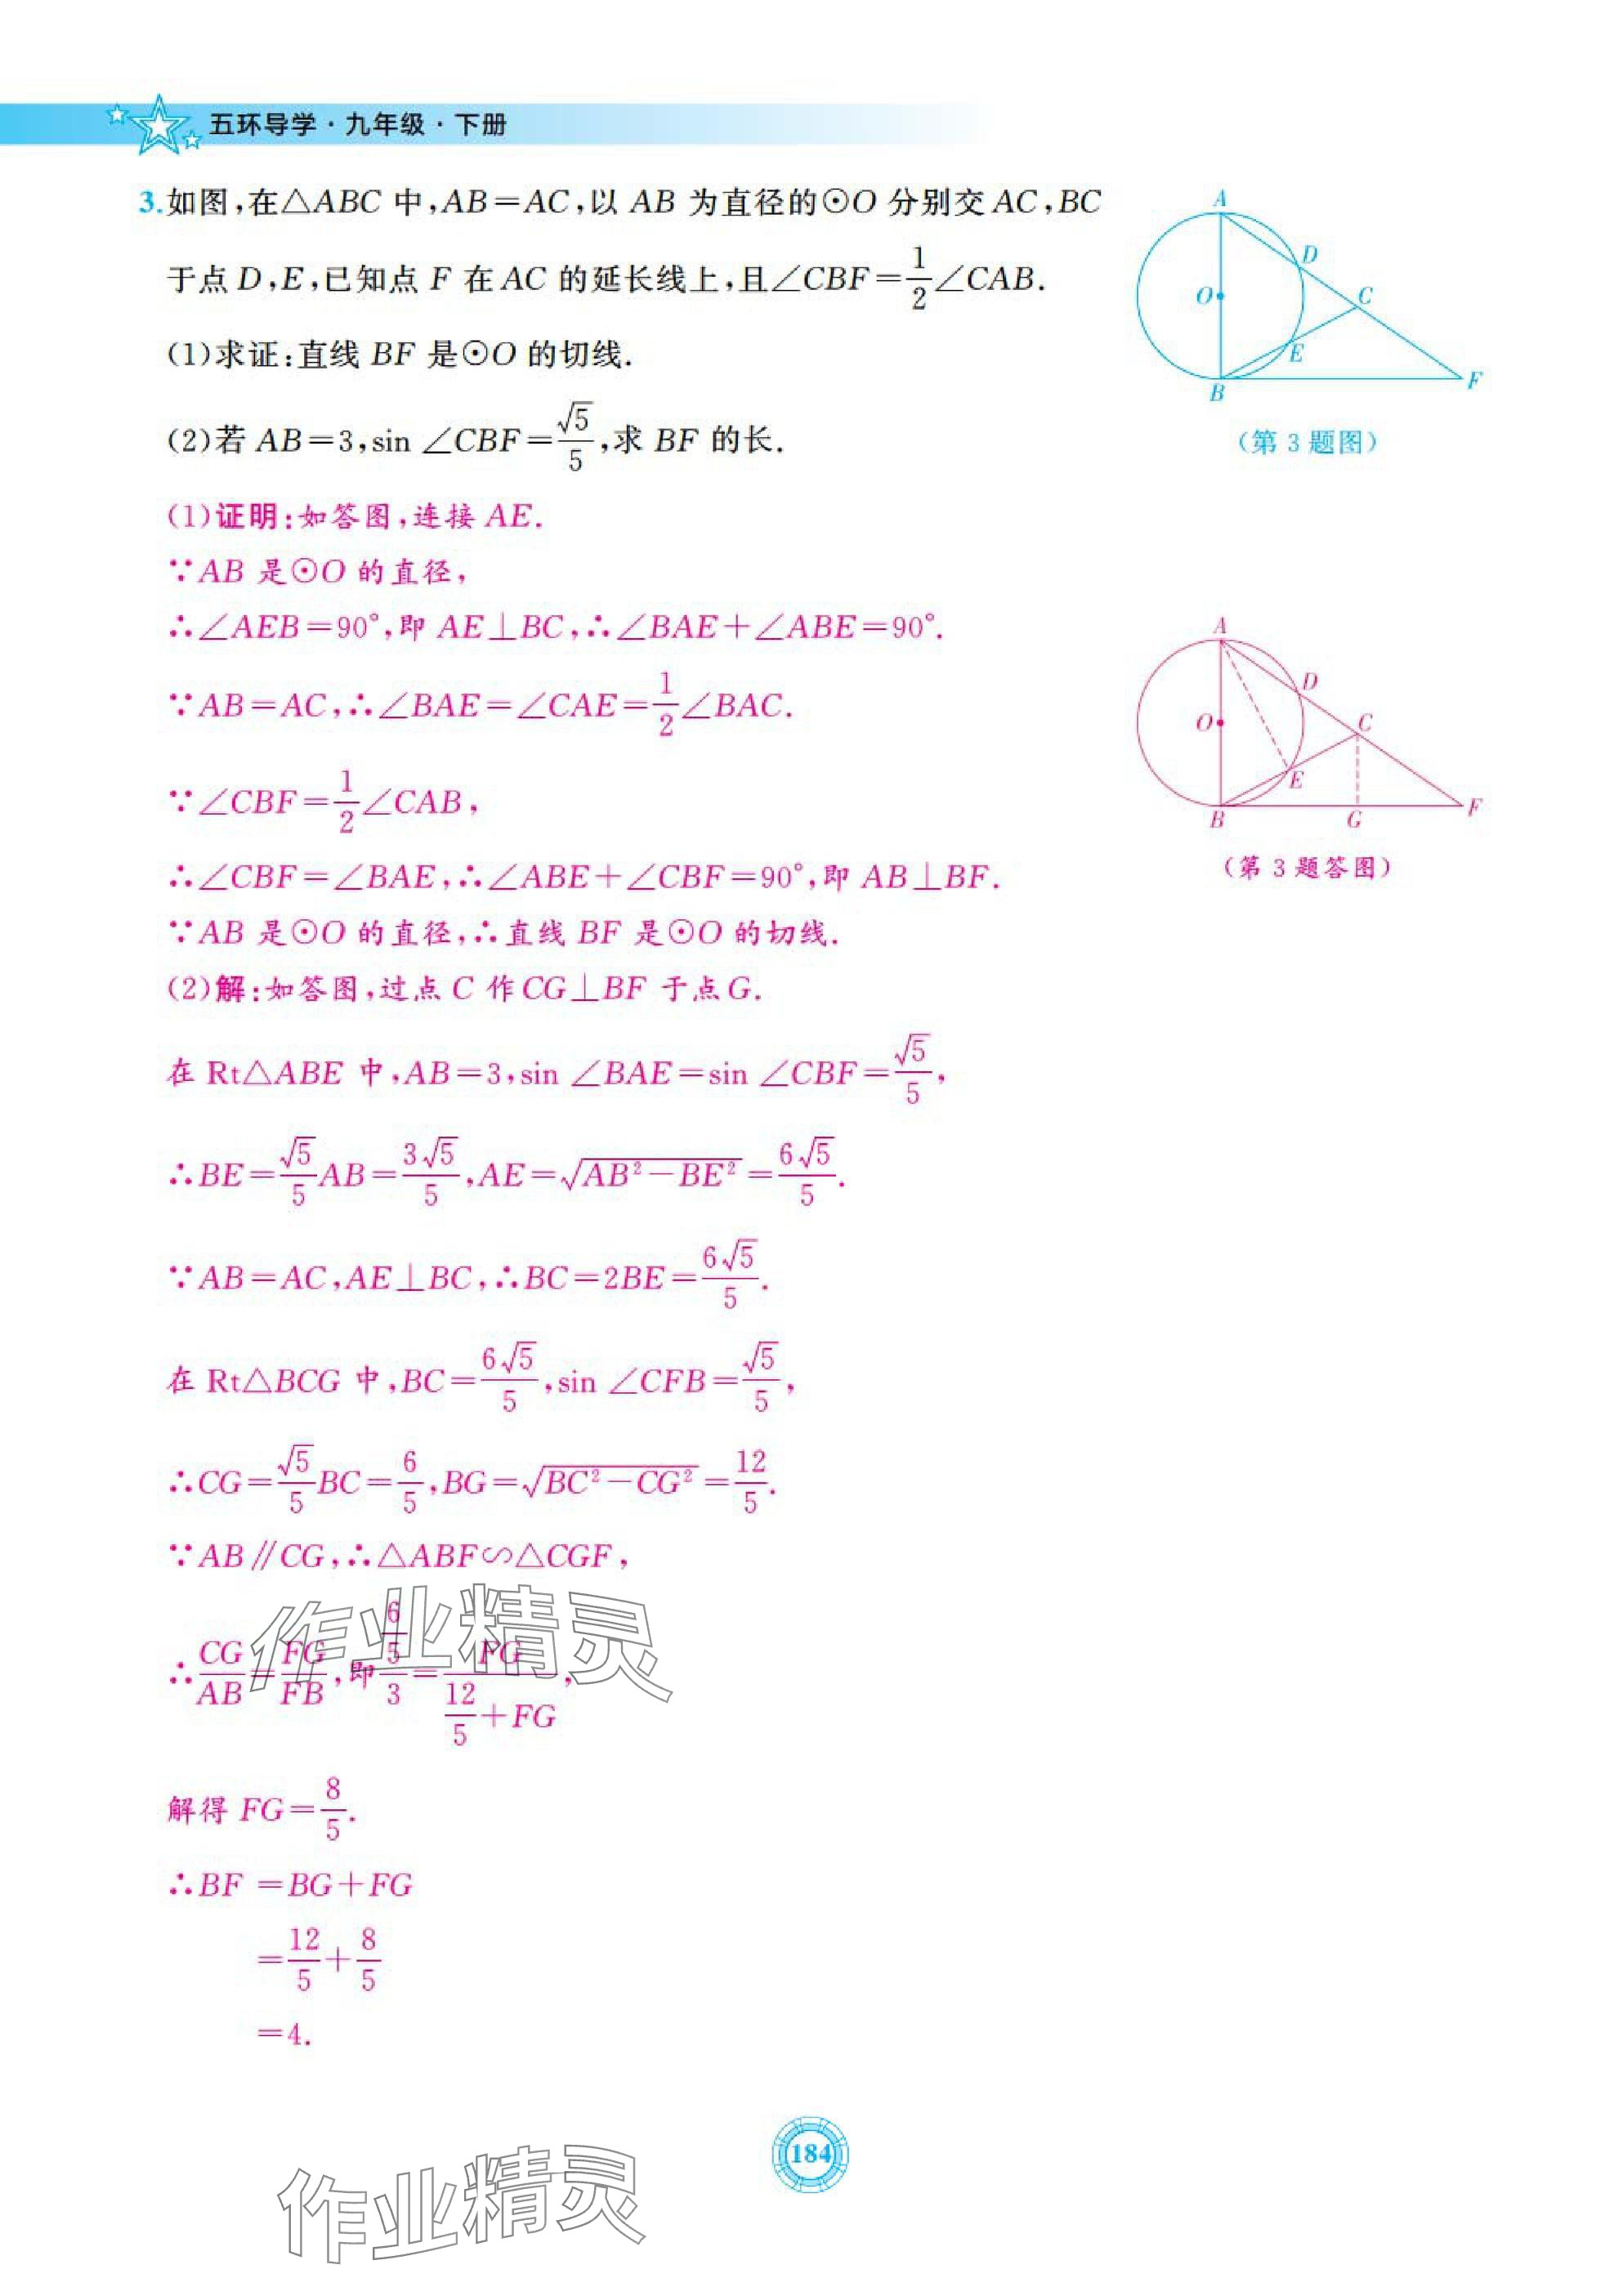 五环导学·九年级·下册
3.如图,在△ABC 中,AB=AC,以 AB 为直径的⊙O 分别交 AC,BC
于点 D,E,已知点 F 在 AC 的延长线上,且∠CBF=1/2∠CAB.
(1)求证:直线 BF 是⊙O 的切线.
(2)若 AB=3,sin ∠CBF=√5/5,求 BF 的长.
A
D
O
C
E
B
F
(第 3 题图)
(1)证明:如答图,连接 AE.
∵AB 是⊙O 的直径,
∴∠AEB=90°,即 AE⊥BC,∴∠BAE+∠ABE=90°.
∵AB=AC,∴∠BAE=∠CAE=1/2∠BAC.
∵∠CBF=1/2∠CAB,
∴∠CBF=∠BAE,∴∠ABE+∠CBF=90°,即 AB⊥BF.
∵AB 是⊙O 的直径,∴直线 BF 是⊙O 的切线.
A
D
O
C
E
B
G
F
(第 3 题答图)
(2)解:如答图,过点 C 作 CG⊥BF 于点 G.
在 Rt△ABE 中,AB=3,sin ∠BAE=sin ∠CBF=√5/5,
∴BE=√5/5AB=3√5/5,AE=√(AB²-BE²)=6√5/5.
∵AB=AC,AE⊥BC,∴BC=2BE=6√5/5.
在 Rt△BCG 中,BC=6√5/5,sin ∠CFB=√5/5,
∴CG=√5/5BC=6/5,BG=√(BC²-CG²)=12/5.
∵AB∥CG,∴△ABF∽△CGF,
∴CG/AB=FG/FB,即(6/5)/3=FG/(12/5+FG),
解得 FG=8/5.
∴BF =BG+FG
=12/5+8/5
=4.
作业精灵
184
作业精灵